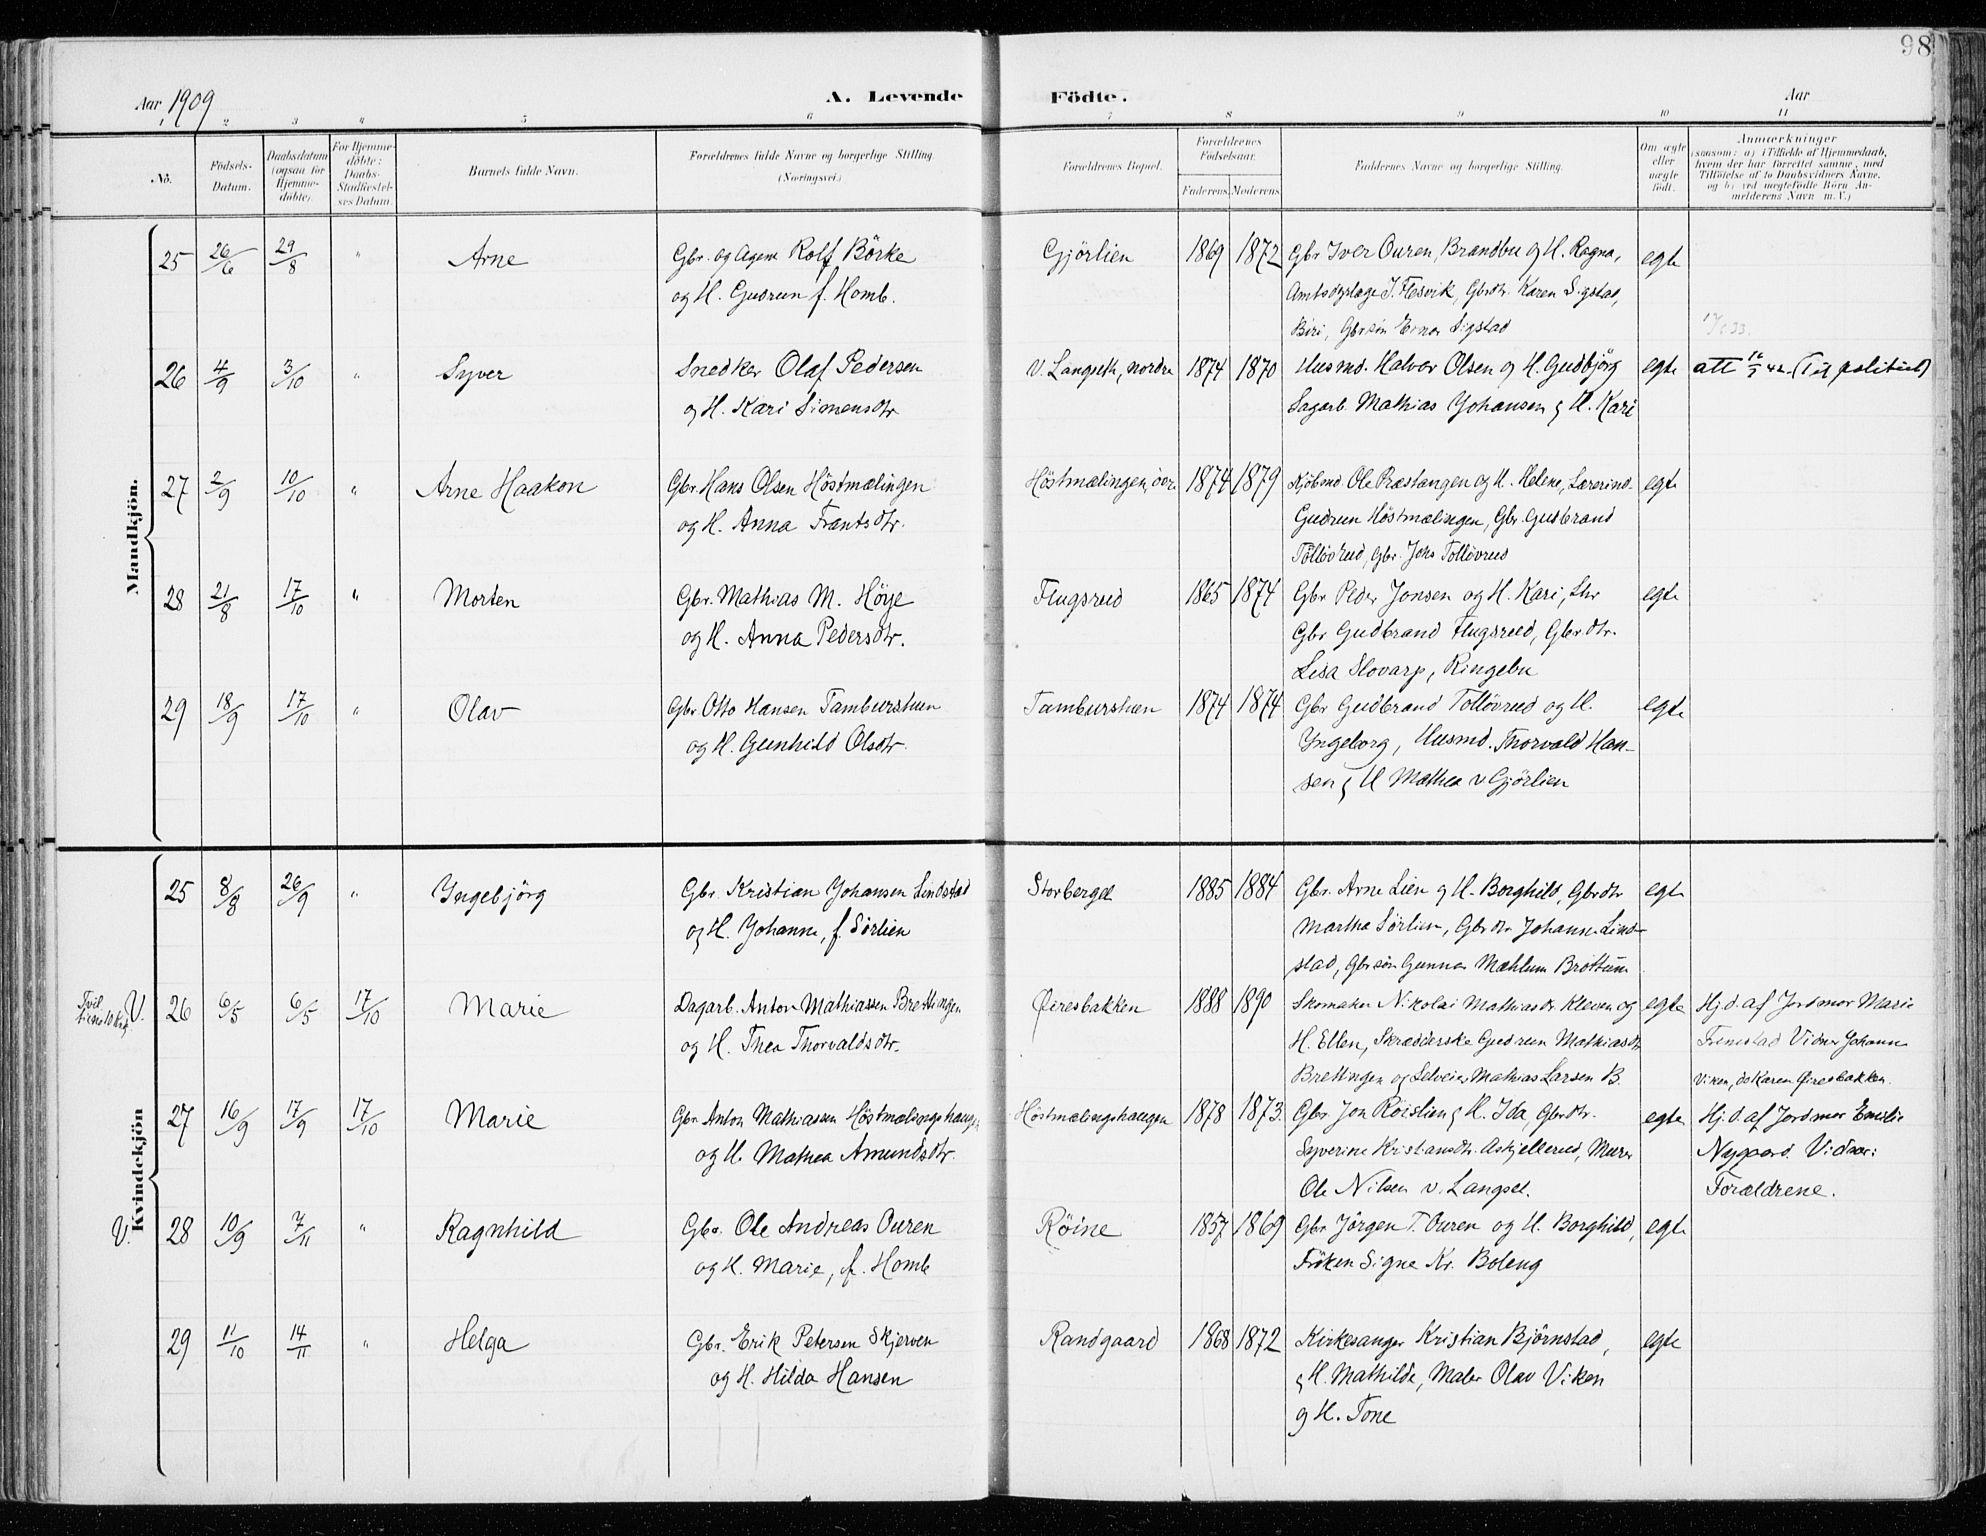 98
Aar 1909
A. Levende Födte.
Aar
1 2 3 4 5 6 7 8 9 10 11
No.
Födsels-Datum.
Daabsdatum (ogsaa for Hjemmedöbte).
For Hjemmedöbte: Daabs-Stadfæstelses Datum.
Barnets fulde Navn.
Forældrenes fulde Navne og borgerlige Stilling.
(Næringsvei.)
Forældrenes Bopæl.
Forældrenes Födselsaar.
Faderens. Moderens.
Faddernes Navne og borgerlige Stilling.
Om ægte eller uægte födt.
Anmærkninger
(saasom: a) i Tilfælde af Hjemmedaab, hvem der har forrettet samme, med Tilföielse af to Daabsvidners Navne, og b) ved uægtefödte Börn Anmelderens Navn m. V.)
Mandkjön.
25 26/6 29/8 " Arne Gbr. og Agent Rolf Börke Gjörlien 1869 1872 Gbr Iver Ouren, Brandbu og H. Ragna, egte
og H. Gudrun f. Homb. Amtsdyrlæge J. Flesvik, Gbrdtr. Karen Sigstad,
Biri, Gbrsön Einar Sigstad
26 4/9 3/10 " Syver Snedker Olaf Pedersen V. Langseth, nordre 1874 1870 Husmd. Halvor Olsen og H. Gudbjörg egte att 16/3 42. (Til politiet)
og H. Kari Simensdtr Sagarb. Mathias Johansen og H. Kari
27 2/9 10/10 " Arne Haakon Gbr. Hans Olsen Höstmælingen Höstmælingen, övre 1874 1879 Kjöbmd Ole Præstangen og H. Helene, Lærerind- egte
og H. Anna Frantsdtr. Gudrun Höstmælingen, Gbr. Gudbrand
Tollövrud, Gbr. Johs Tollövrud
28 21/8 17/10 " Morten Gbr. Mathias M. Höye Flugsrud 1865 1874 Gbr Peder Jonsen og H. Kari, egte
og H. Anna Pedersdtr. Gbr Gudbrand Flugsrud, Gbrdtr.
Lisa Slovarp, Ringebu
29 18/9 17/10 " Olav Gbr Otto Hansen Tamburstuen Tamburstuen 1874 1874 Gbr Gudbrand Tollövrud og H. egte
og H. Gunhild Olsdtr. Yngeborg, Husmd. Thorvald Han-
sen og H Mathea v Gjörlien
Kvindekjön
25 8/8 26/9 " Yngebjörg Gbr. Kristian Johansen Lindstad Storberget 1885 1884 Gbr. Arne Lien og H. Borghild, Gbrdtr egte
og H. Johanne, f. Sörlien Martha Sörlien, Gbrdtr Johanne Lind-
stad, Gbrsön Gunnar Mæhlum Bröttum
V. 26 6/5 6/5 17/10 Marie Dagarb. Anton Mathiassen Brettingen Öiresbakken 1888 1890 Skomaker Nikolai Mathiasdtr. Kleven og egte Hj.d. af Jordmor Marie
og H. Thea Thorvaldsdtr. H. Ellen, Skrædderske Gudrun Mathiasdtr Fremstad Vidner Johanne
Brettingen og Selveier Mathias Larsen B. Viken, do Karen Öiresbakken.
27 16/9 17/9 17/10 Marie Gbr. Anton Mathiassen Höstmælingshaugen Höstmælingshaugen 1878 1873. Gbr. Jon Röislien og H. Ida, Gbrdtr. egte Hj.d. af Jordmor Emilie
og H. Mathea Amundsdtr. Syverine Kristiansdtr. Askjellerud, Murer Nygaard. Vidner:
Ole Nilsen v. Langset. Forældrene.
V. 28 10/9 7/11 " Ragnhild Gbr. Ole Andreas Ouren Röine 1857 1869 Gbr Jörgen T. Ouren og H. Borghild, egte
og H. Marie, f. Homb Fröken Signe Kr. Boleng
29 11/10 14/11 " Helga Gbr. Erik Petersen Skjerven Randgaard 1868 1872 Kirkesanger Kristian Björnstad, egte
og H. Hilda Hansen og H. Mathilde, Maler Olav Viken
og H. Tone